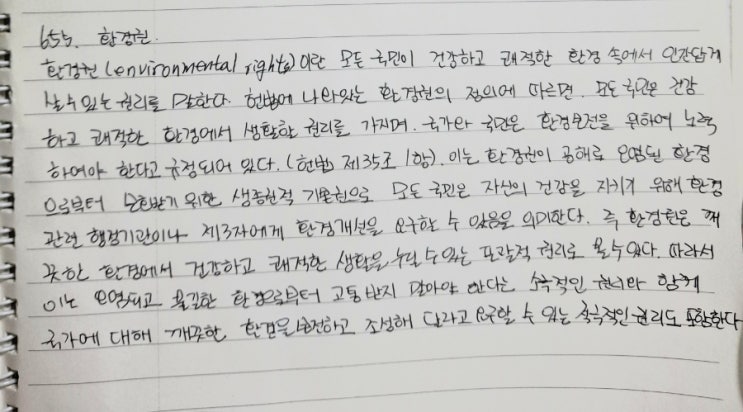 655. 환경권.
환경권(environmental rights)이란 모든 국민이 건강하고 쾌적한 환경 속에서 인간답게
살 수 있는 권리를 말한다. 헌법에 나와있는 환경권의 정의에 따르면. 모든 국민은 건강
하고 쾌적한 환경에서 생활할 권리를 가지며. 국가와 국민은 환경보전을 위하여 노력
하여야 한다고 규정되어 있다. (헌법 제35조 1항). 이는 환경권이 공해로 오염된 환경
으로부터 보호받기 위한 생존권적 기본권으로 모든 국민은 자신의 건강을 지키기 위해 환경
관련 행정기관이나 제3자에게 환경개선을 요구할 수 있음을 의미한다. 즉 환경권은 깨
끗한 환경에서 건강하고 쾌적한 생활을 누릴 수 있는 포괄적 권리로 볼 수 있다. 따라서
이는 오염되고 불결한 환경으로부터 고통받지 말아야 한다는 소극적인 권리와 함께
국가에 대해 깨끗한 환경을 보전하고 조성해 달라고 요구할 수 있는 적극적인 권리도 포함한다